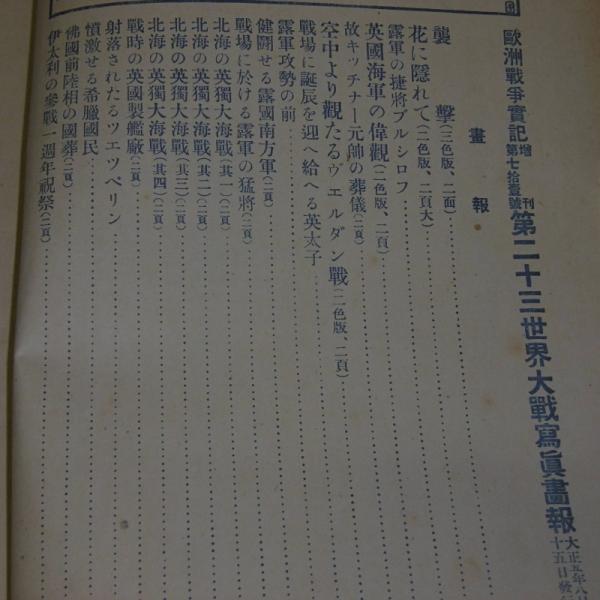 歐洲戰爭實記 增刊 第七拾壹號 第二十三世界大戰寫眞畫報 大正五年八月十五日發行
畫報
襲擊(三色版、二面)
花に隱れて(二色版、二頁大)
露軍の捷將ブルシロフ
英國海軍の偉觀(二色版、二頁)
故キッチナー元帥の葬儀(二頁)
空中より觀たるヴエルダン戰(二色版、二頁)
戰場に誕辰を迎へ給へる英太子
露軍攻勢の前
健鬪せる露國南方軍(二頁)
戰場に於ける露軍の猛將(二頁)
北海の英獨大海戰(其一)(二頁)
北海の英獨大海戰(其二)(二頁)
北海の英獨大海戰(其三)(二頁)
北海の英獨大海戰(其四)(二頁)
戰時の英國製艦廠(二頁)
射落されたるツエツペリン
憤激せる希臘國民
佛國前陸相の國葬(二頁)
伊太利の參戰一週年祝祭(二頁)